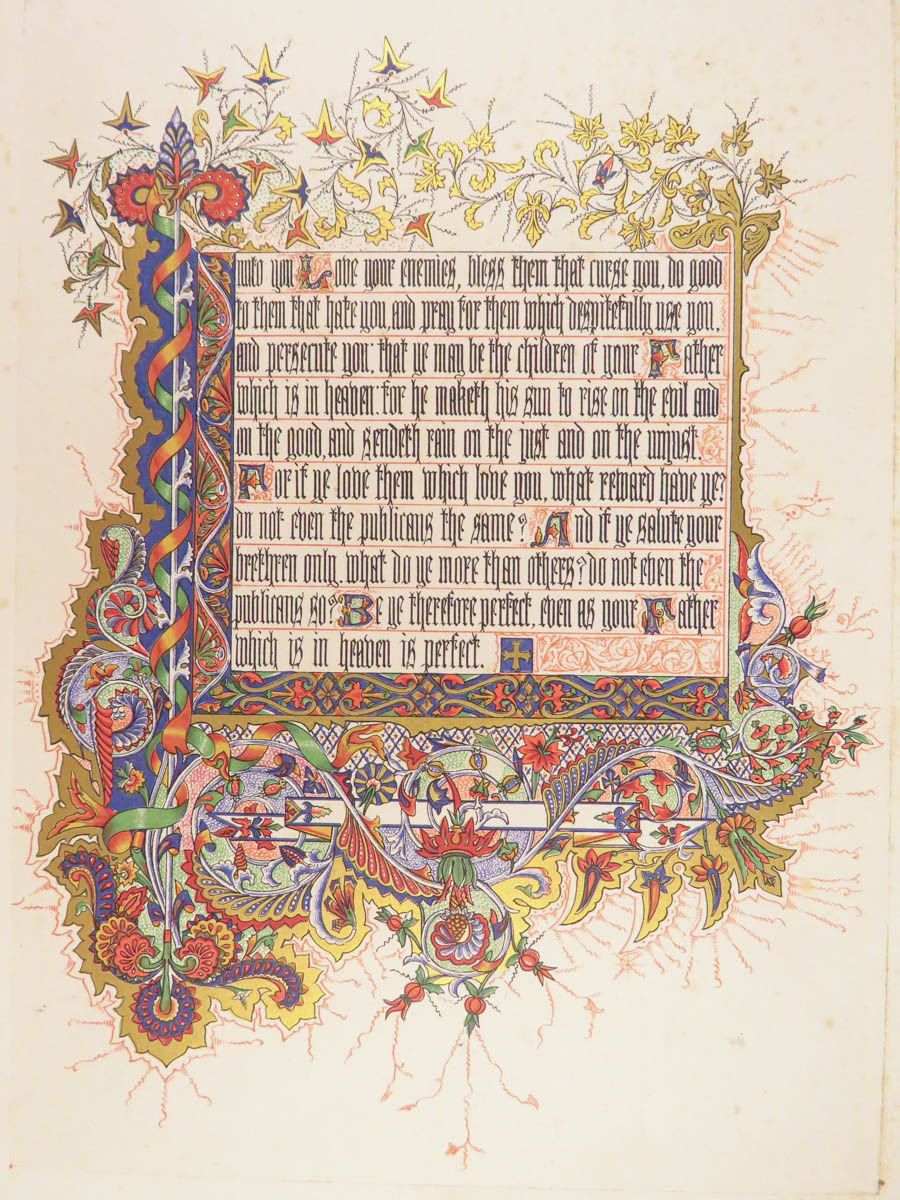 unto you Love your enemies, bless them that curse you, do good
to them that hate you, and pray for them which despitefully use you,
and persecute you, that ye may be the children of your Father
which is in heaven: for he maketh his sun to rise on the evil and
on the good, and sendeth rain on the just and on the unjust.
For if ye love them which love you, what reward have ye?
do not even the publicans the same? And if ye salute your
brethren only, what do ye more than others? do not even the
publicans so? Be ye therefore perfect, even as your Father
which is in heaven is perfect.